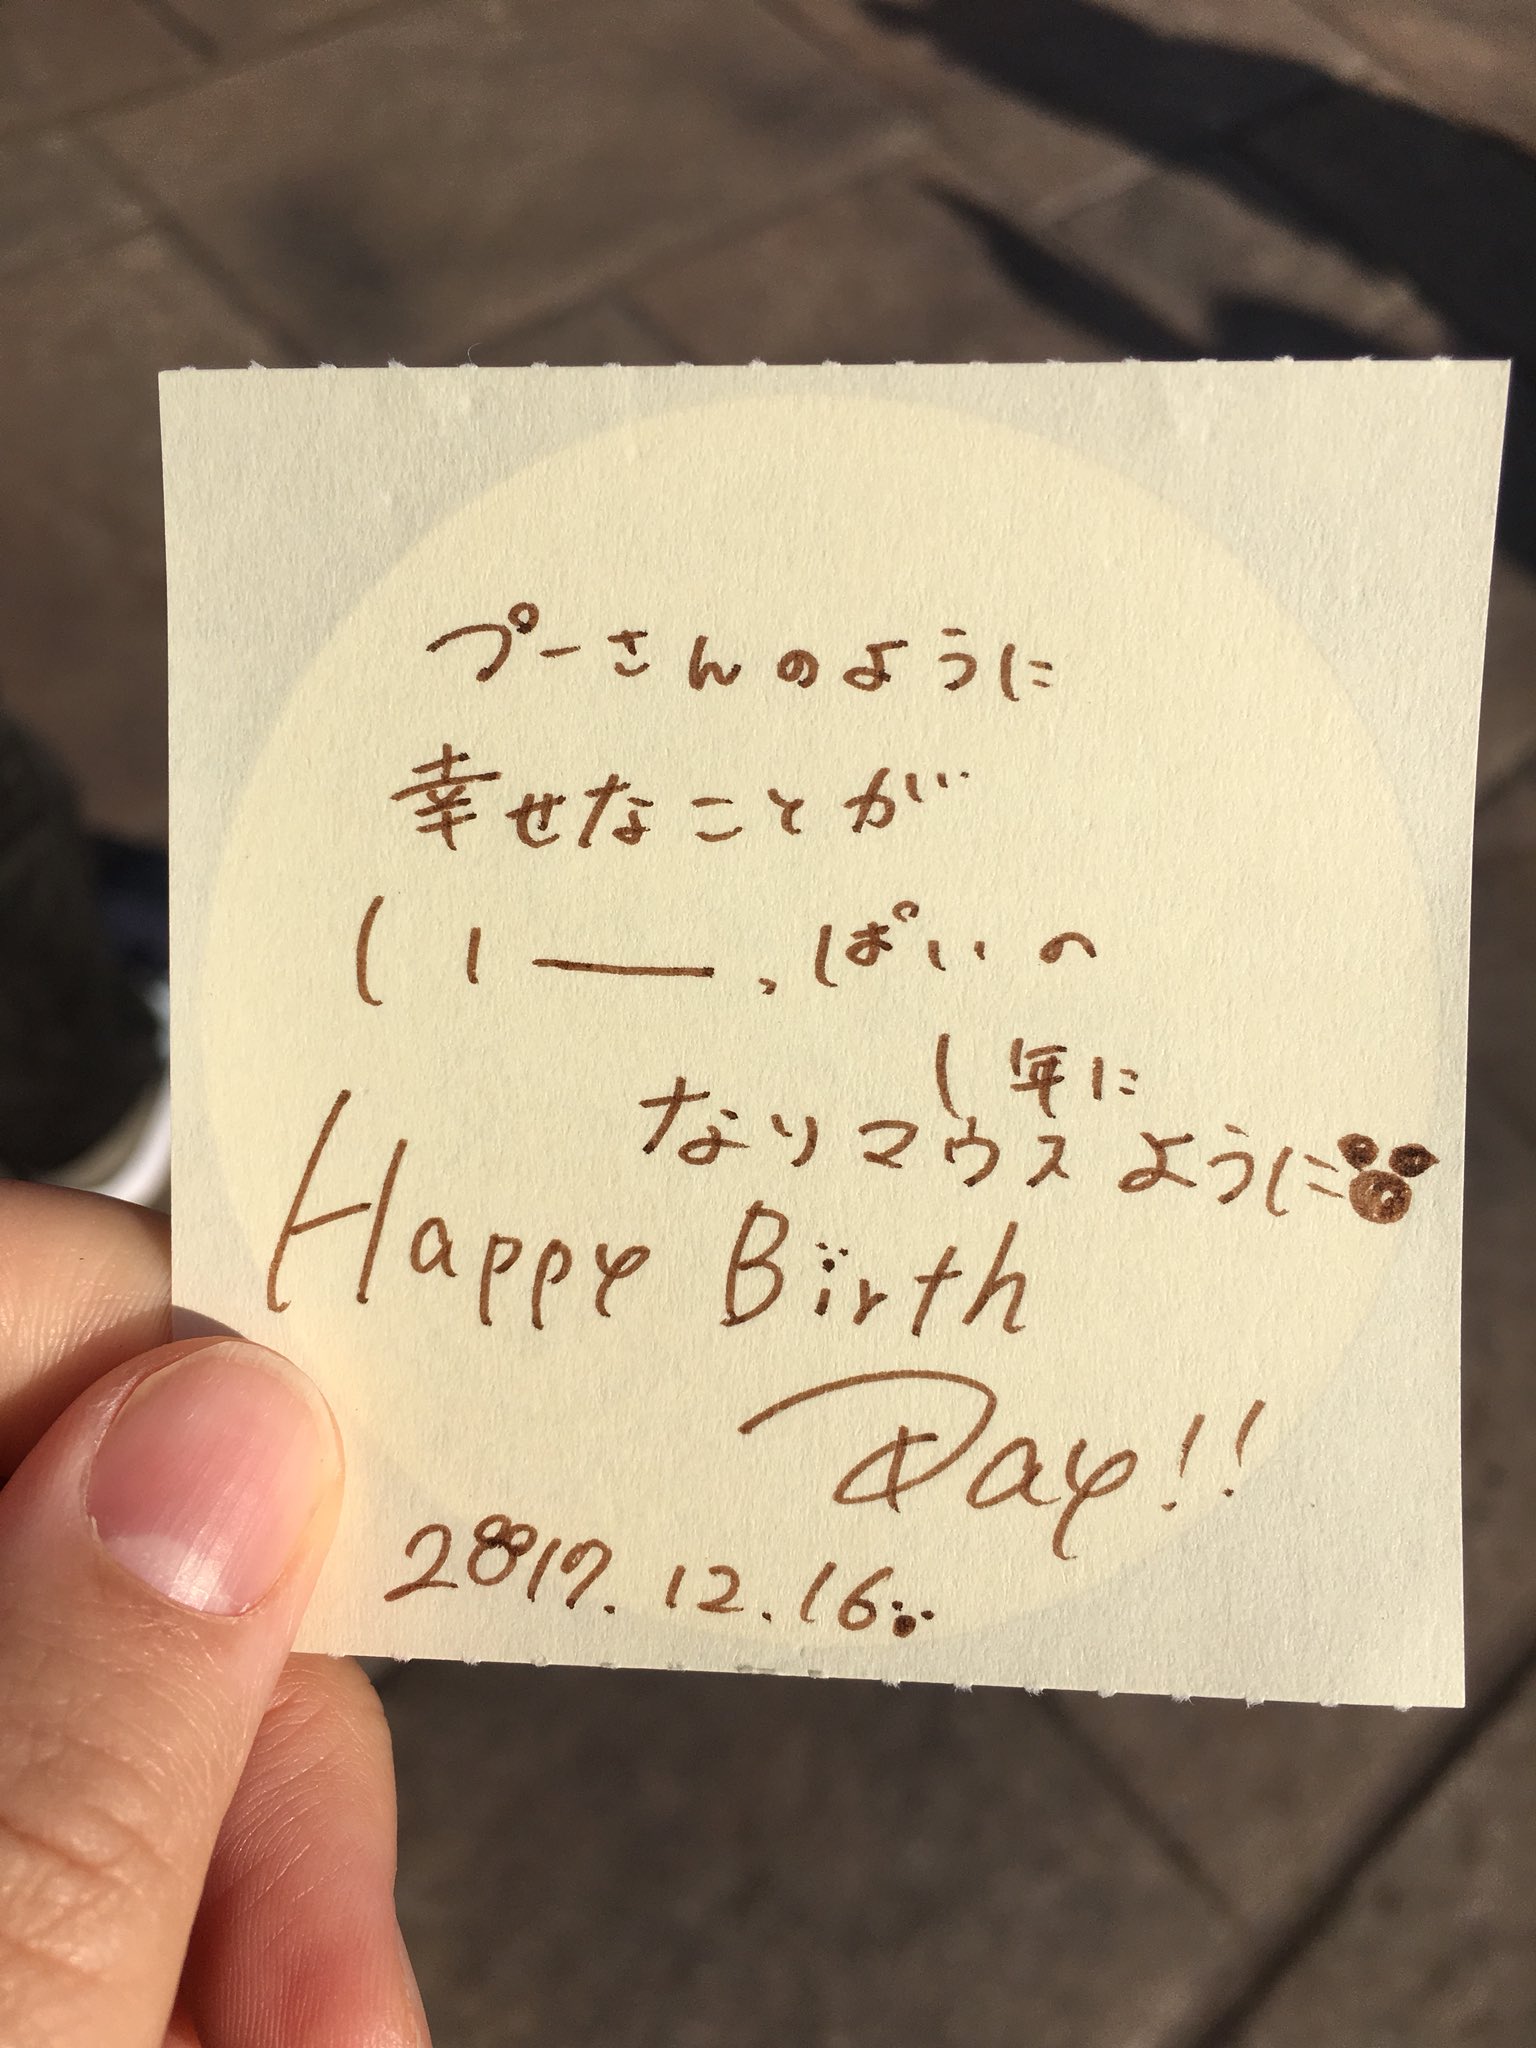 プーさんのように
幸せなことが
いーっぱいの
1年に
なりマウスように
Happy Birth
Day!!
2017.12.16